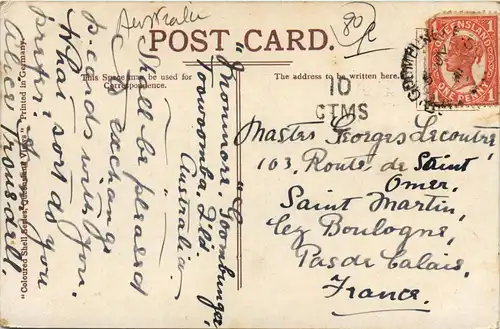 Australie
80
POST CARD.
This Space may be used for
Correspondence.
The address to be written here.
10
CTMS
QUEENSLAND
ONE PENNY
"Glonmore," Goombungee,
Toowoomba, Qld.
Australia
Shall be pleased
to exchange
p.cards with you.
What sort do you
prefer?
Alice Trousdell.
"Coloured Shell Series Queensland Views" Printed in Germany.
Master Georges Lecoutre,
103, Route de Saint
Omer,
Saint Martin,
lez Boulogne,
Pas de Calais,
France.